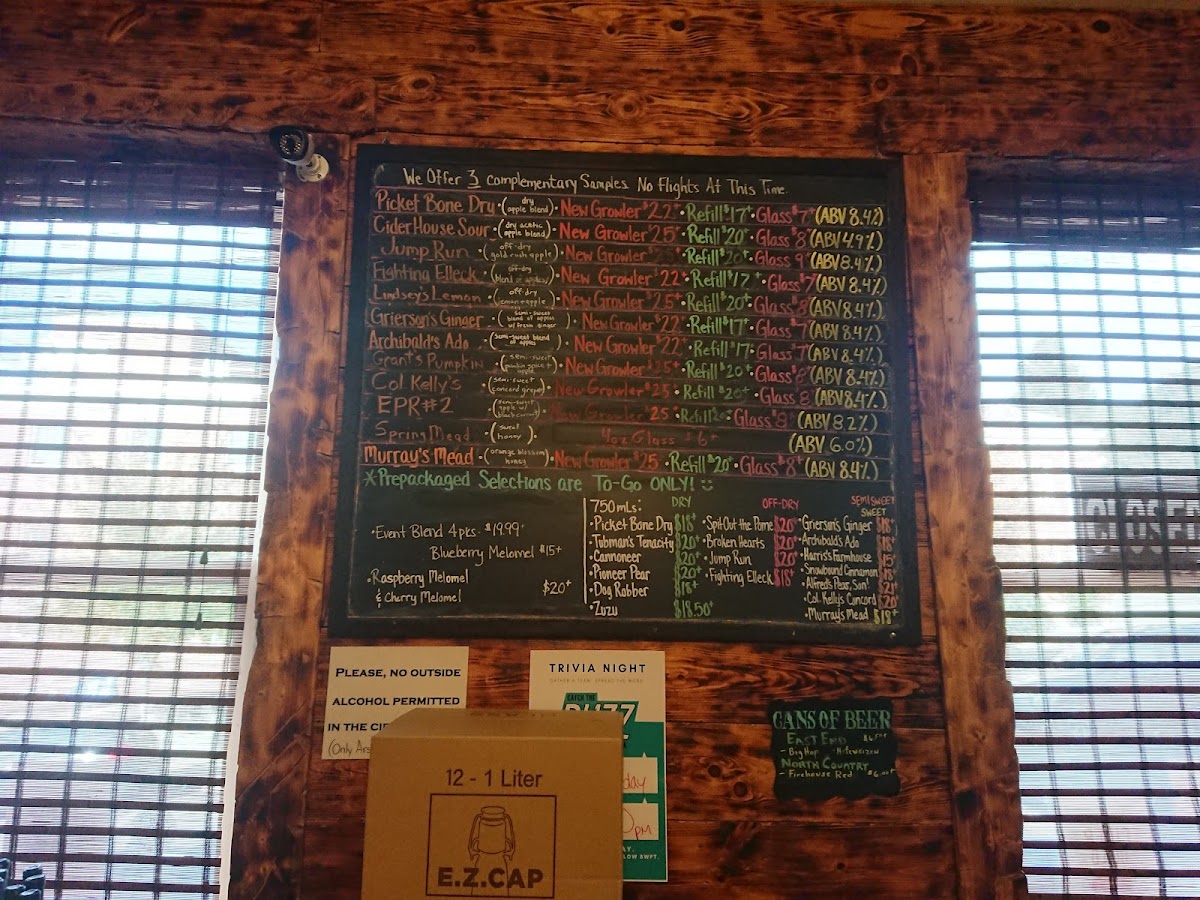 We Offer 3 complementary Samples. No Flights At This Time.
Picket Bone Dry • (dry apple blend) • New Growler $22⁺ • Refill $17⁺ • Glass $7⁺ (ABV 8.4%)
Cider House Sour • (dry acetic apple blend) • New Growler $25⁺ • Refill $20⁺ • Glass $8⁺ (ABV 4.9%)
Jump Run • (off-dry gold rush apple) • New Growler • Refill $20⁺ • Glass 9⁺ (ABV 8.4%)
Fighting Elleck • (off-dry blend of apples) • New Growler $22⁺ • Refill $17⁺ • Glass $7 (ABV 8.4%)
Lindsey's Lemon • (off-dry lemon+apple) • New Growler $25⁺ • Refill $20⁺ • Glass $8 (ABV 8.4%)
Grierson's Ginger • (semi-sweet blend of apples w/ fresh ginger) • New Growler $22⁺ • Refill $17⁺ • Glass $7 (ABV 8.4%)
Archibald's Ado • (semi-sweet blend of apples) • New Growler $22⁺ • Refill $17 • Glass 7⁺ (ABV 8.4%)
Grant's Pumpkin • (semi-sweet pumpkin spice + apple) • New Growler $25⁺ • Refill $20⁺ • Glass $8 (ABV 8.4%)
Col Kelly's • (semi-sweet concord grape) • New Growler $25 • Refill $20⁺ • Glass 8 (ABV 8.4%)
EPR#2 • (semi-sweet apple w/ black currant) • New Growler $25 • Refill • Glass $8 (ABV 8.2%)
Spring Mead • (sweet honey) • 4oz Glass $6⁺ (ABV 6.0%)
Murray's Mead • (orange blossom honey) • New Growler $25 • Refill $20⁺ • Glass $8⁺ (ABV 8.4%)
*Prepackaged Selections are To-Go ONLY! :)
•Event Blend 4pks. $19.99⁺
Blueberry Melomel $15⁺
•Raspberry Melomel
& Cherry Melomel $20⁺
750mLs: DRY
•Picket Bone Dry $18⁺
•Tubman's Tenacity $20⁺
•Cannoneer $20⁺
•Pioneer Pear $20⁺
•Dog Robber $18⁺
•Zuzu $18.50⁺
OFF-DRY
•Spit Out the Pome $20⁺
•Broken Hearts $20⁺
•Jump Run $20⁺
•Fighting Elleck $18⁺
SEMI SWEET
SWEET
•Grierson's Ginger $18⁺
•Archibald's Ado $18⁺
•Harris's Farmhouse $15
•Snowbound Cinnamon $18
•Alfred's Pear, Son! $21⁺
•Col. Kelly's Concord $20⁺
•Murray's Mead $18⁺
PLEASE, NO OUTSIDE
ALCOHOL PERMITTED
IN THE CI
(Only Ars
TRIVIA NIGHT
GATHER A TEAM. SPREAD THE WORD.
CATCH THE
BUZZ
day
0PM
AY.
LOW BWFT.
CANS OF BEER
EAST END
- Big Hop - Hefeweizen
NORTH COUNTRY
- Firehouse Red
12 - 1 Liter
E.Z.CAP
CLOSED